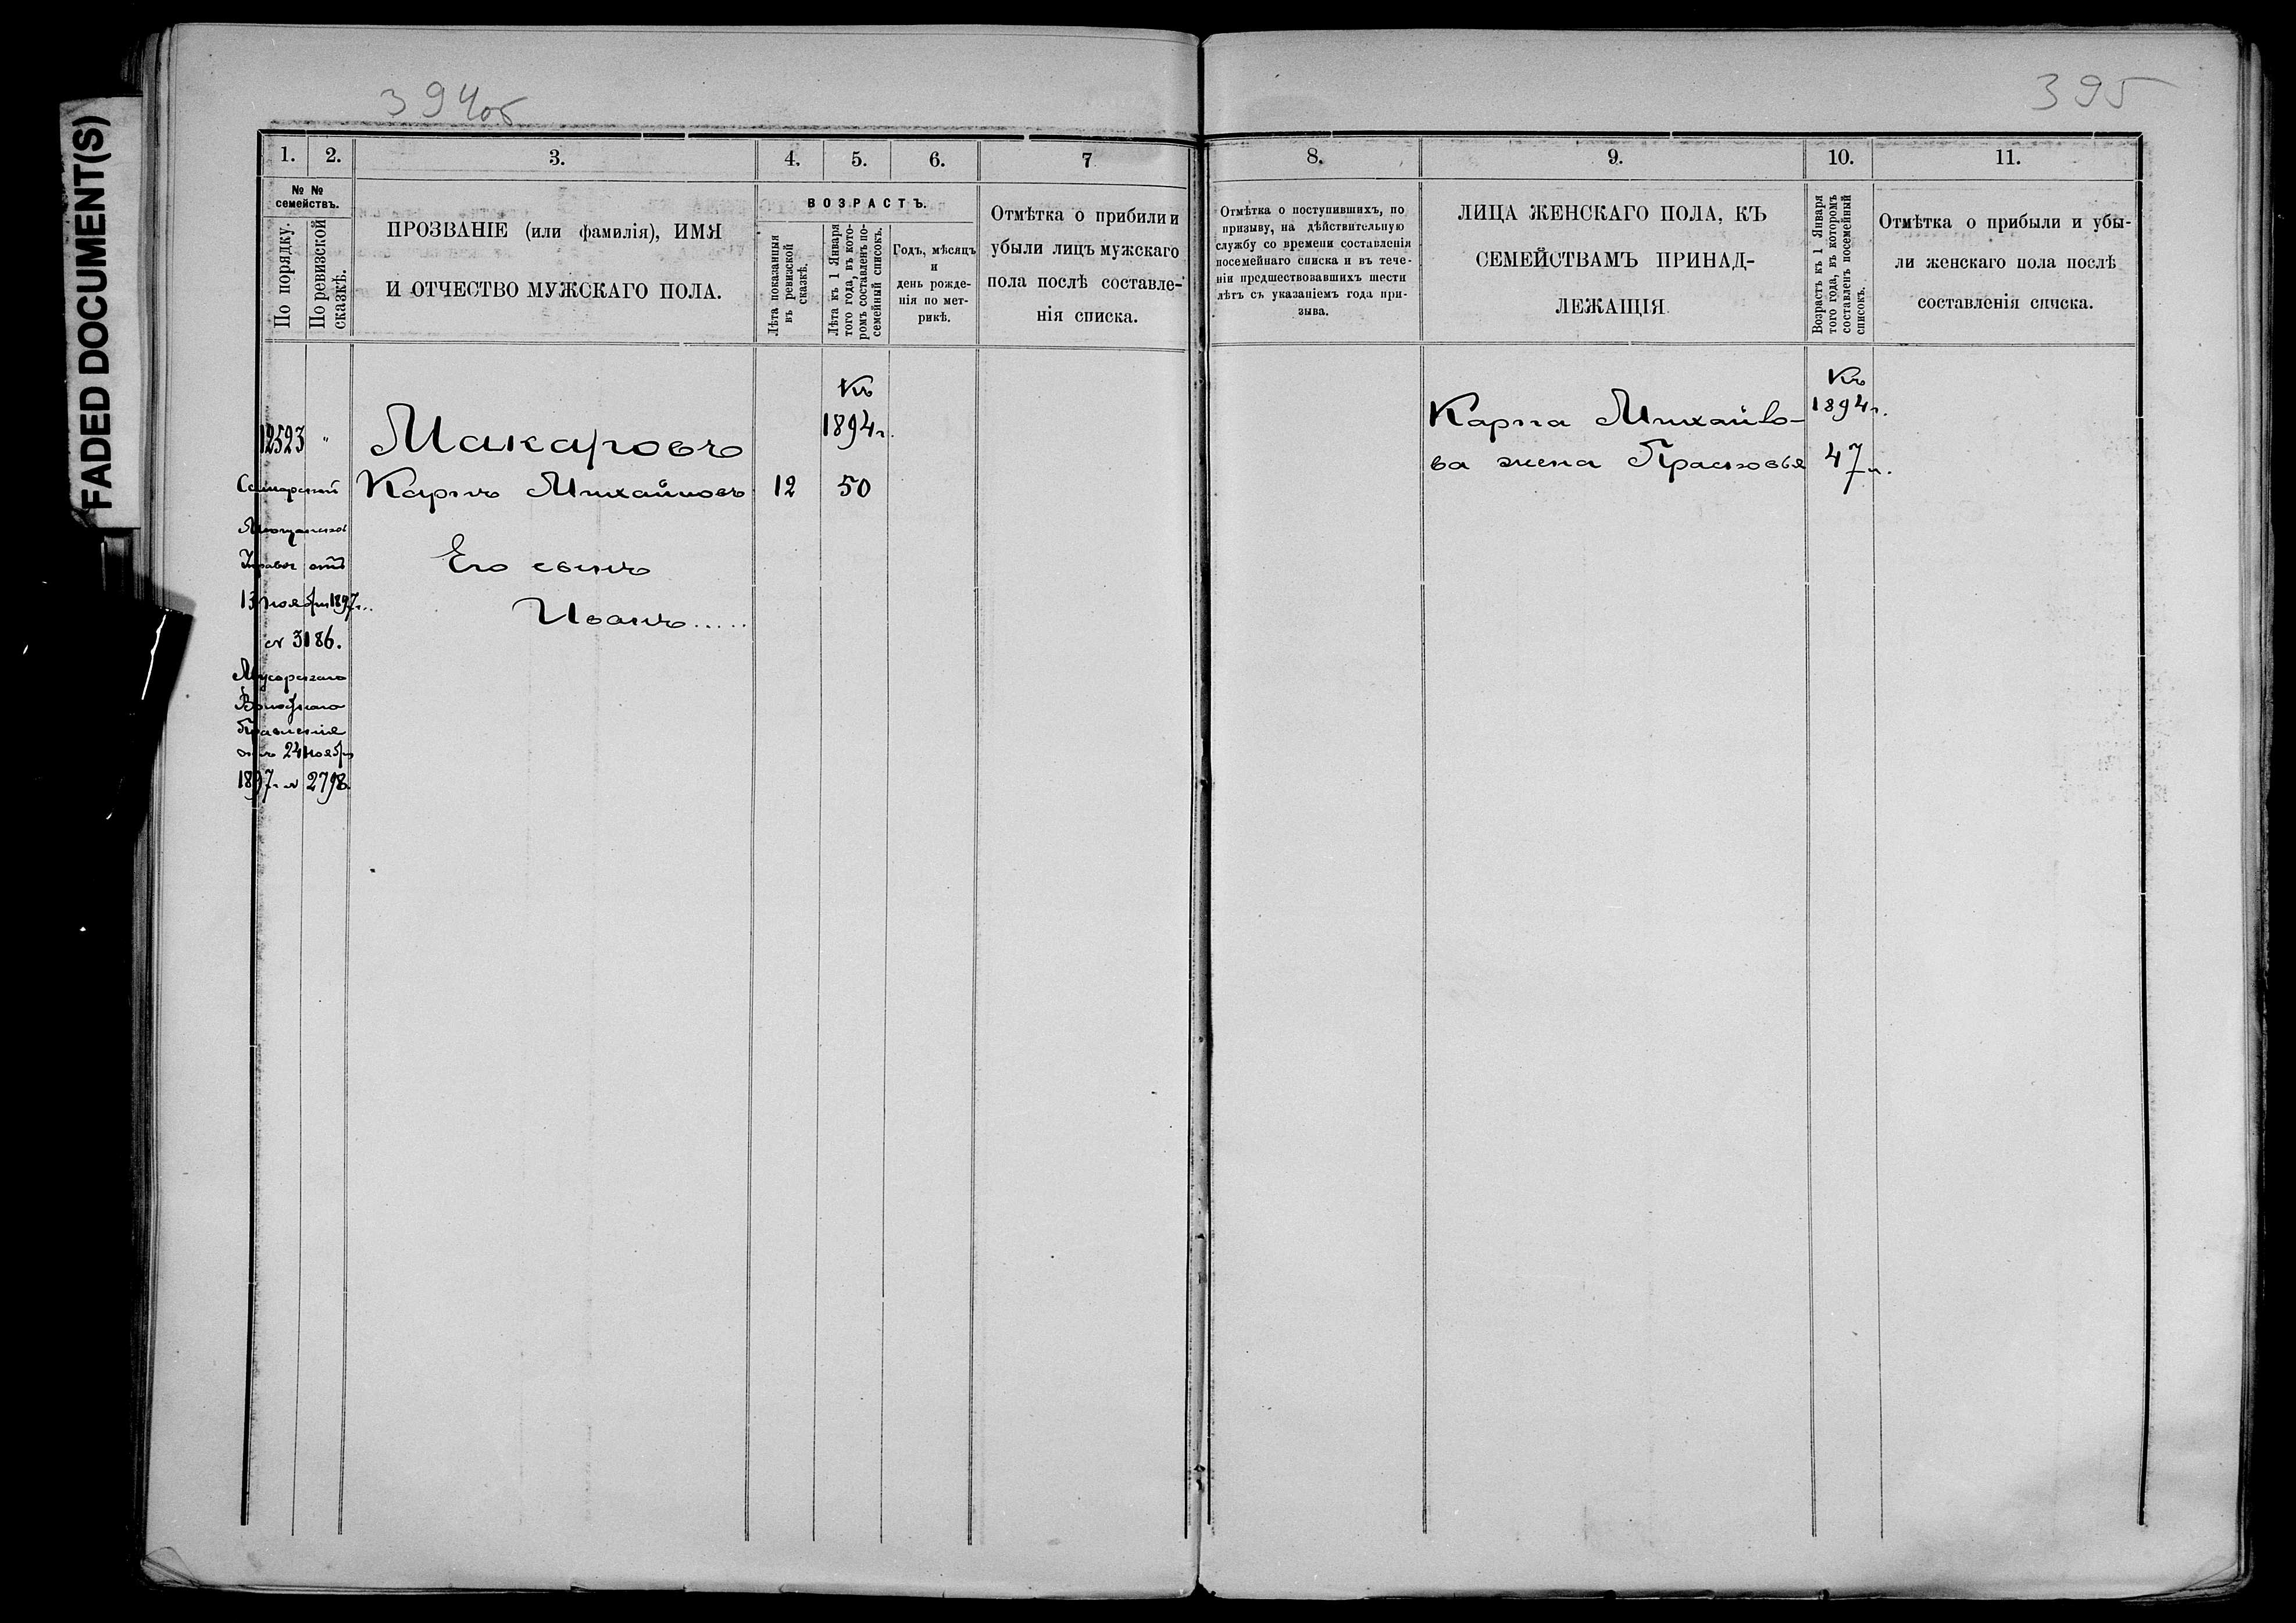 FADED DOCUMENT(S)
394об
1. 2. 3. 4. 5. 6. 7
№ №
семействъ.
По порядку.
По ревизской
сказкѣ.
ПРОЗВАНІЕ (или фамилія), ИМЯ
И ОТЧЕСТВО МУЖСКАГО ПОЛА.
ВОЗРАСТЪ.
Лѣта показанныя
въ ревизской
сказкѣ.
Лѣта къ 1 Января
того года, въ кото-
ромъ составленъ по-
семейный списокъ.
Годъ, мѣсяцъ
и
день рожде-
нія по мет-
рикѣ.
Отмѣтка о прибыли и
убыли лицъ мужскаго
пола послѣ составле-
нія списка.
Къ
1894г.
12523 "
Макаровъ
Карпъ Михайловъ 12 50
Его сынъ
Иванъ.....
Самарской
Мѣщанской
Управы отъ
13 ноября 1897г.
№ 3186.
Мусорскаго
Волостнаго
Правленія
отъ 24 ноября
1897г. № 2798.
395
8. 9. 10. 11.
Отмѣтка о поступившихъ, по
призыву, на дѣйствительную
службу со времени составленія
посемейнаго списка и въ тече-
ніи предшествовавшихъ шести
лѣтъ съ указаніемъ года при-
зыва.
ЛИЦА ЖЕНСКАГО ПОЛА, КЪ
СЕМЕЙСТВАМЪ ПРИНАД-
ЛЕЖАЩІЯ
Возрастъ къ 1 Января
того года, въ которомъ
составленъ посемейный
списокъ.
Отмѣтка о прибыли и убы-
ли женскаго пола послѣ
составленія списка.
Къ
1894г.
Карпа Михайло-
ва жена Прасковья 47л.